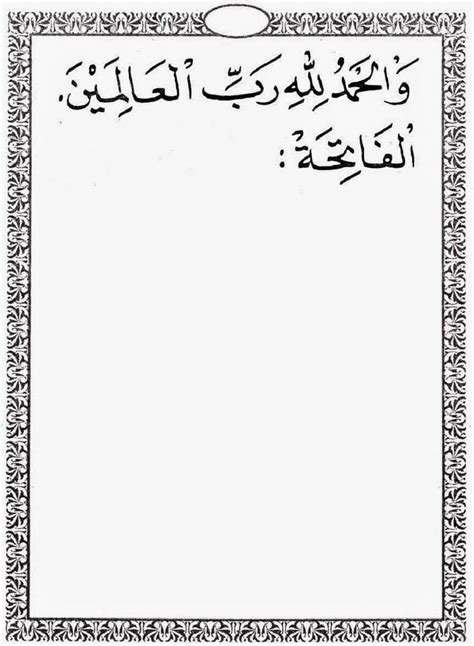 وَالْحَمْدُ لِلّٰهِ رَبِّ الْعَالَمِيْنَ.
الْفَاتِحَةْ :